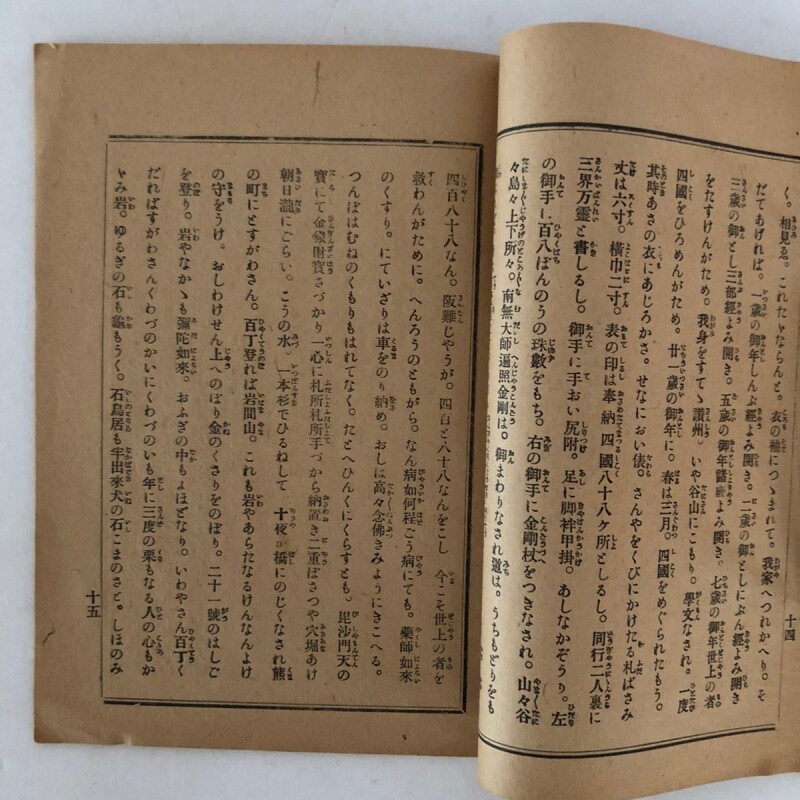 く。相見ゑ。これたゝならんと。衣の袖につゝまれて。我家へつれかへり。そ
だてあげれば。一歳の御年しんぶ經よみ開き。二歳の御としにぶん經よみ開き
三歳の御とし三部經よみ開き。五歳の御年諸經よみ開き。七歳の御年世上の者
をたすけんがため。我身をすてゝ讃州。いや谷山にこもり。學文なされ。一度
四國をひろめんがため。廿一歳の御年に。春は三月。四國をめぐられたもう。
其時あさの衣にあじろかさ。せなにおい俵。さんやをくびにかけたる札ばさみ
丈は六寸。橫巾二寸。表の印は奉納四國八十八ヶ所としるし。同行二人裏に
三界万靈と書しるし。御手に手おい尻附。足に脚袢甲掛。あしなかぞうり。左
の御手に百八ぼんのうの珠數をもち。右の御手に金剛杖をつきなされ。山々谷
々島々上下所々。南無大師遍照金剛は。御まわりなされ道は。うちもどりをも
十四
四百八十八なん。阪難じやうが。四百と八十八なんをこし 今こそ世上の者を
救わんがために。へんろうのともがら。なん病如何程ごう病にても。藥師如來
のくすり。にていざりは車をのり納め。おしは高々念佛きみようにきこへる。
つんぼはむねのくもりもはれてなく。たとへひんくにくらすとも。毘沙門天の
寶にて金銀財寶さづかり一心に札所札所手づから納置き二重ばさつや穴堀あけ
朝日瀧にごらい。こうの水。一本杉でひるねして 十夜の橋にのじくなされ熊
の町にとすがわさん。百丁登れば岩間山。これも岩やあらたなるけんなんよけ
の守をうけ。おしわけせん上へのぼり金のくさりをのぼり。二十一號のはしご
を登り。岩やなかゝも彌陀如來。おふぎの中もよほどなり。いわやさん百丁く
だればすがわさんくわづのかいにくわづのいも年に三度の栗もなる人の心もか
ゃみ岩。ゆるぎの石も龜もうく。石鳥居も半出來犬の石こまのさと。しほのみ
十五